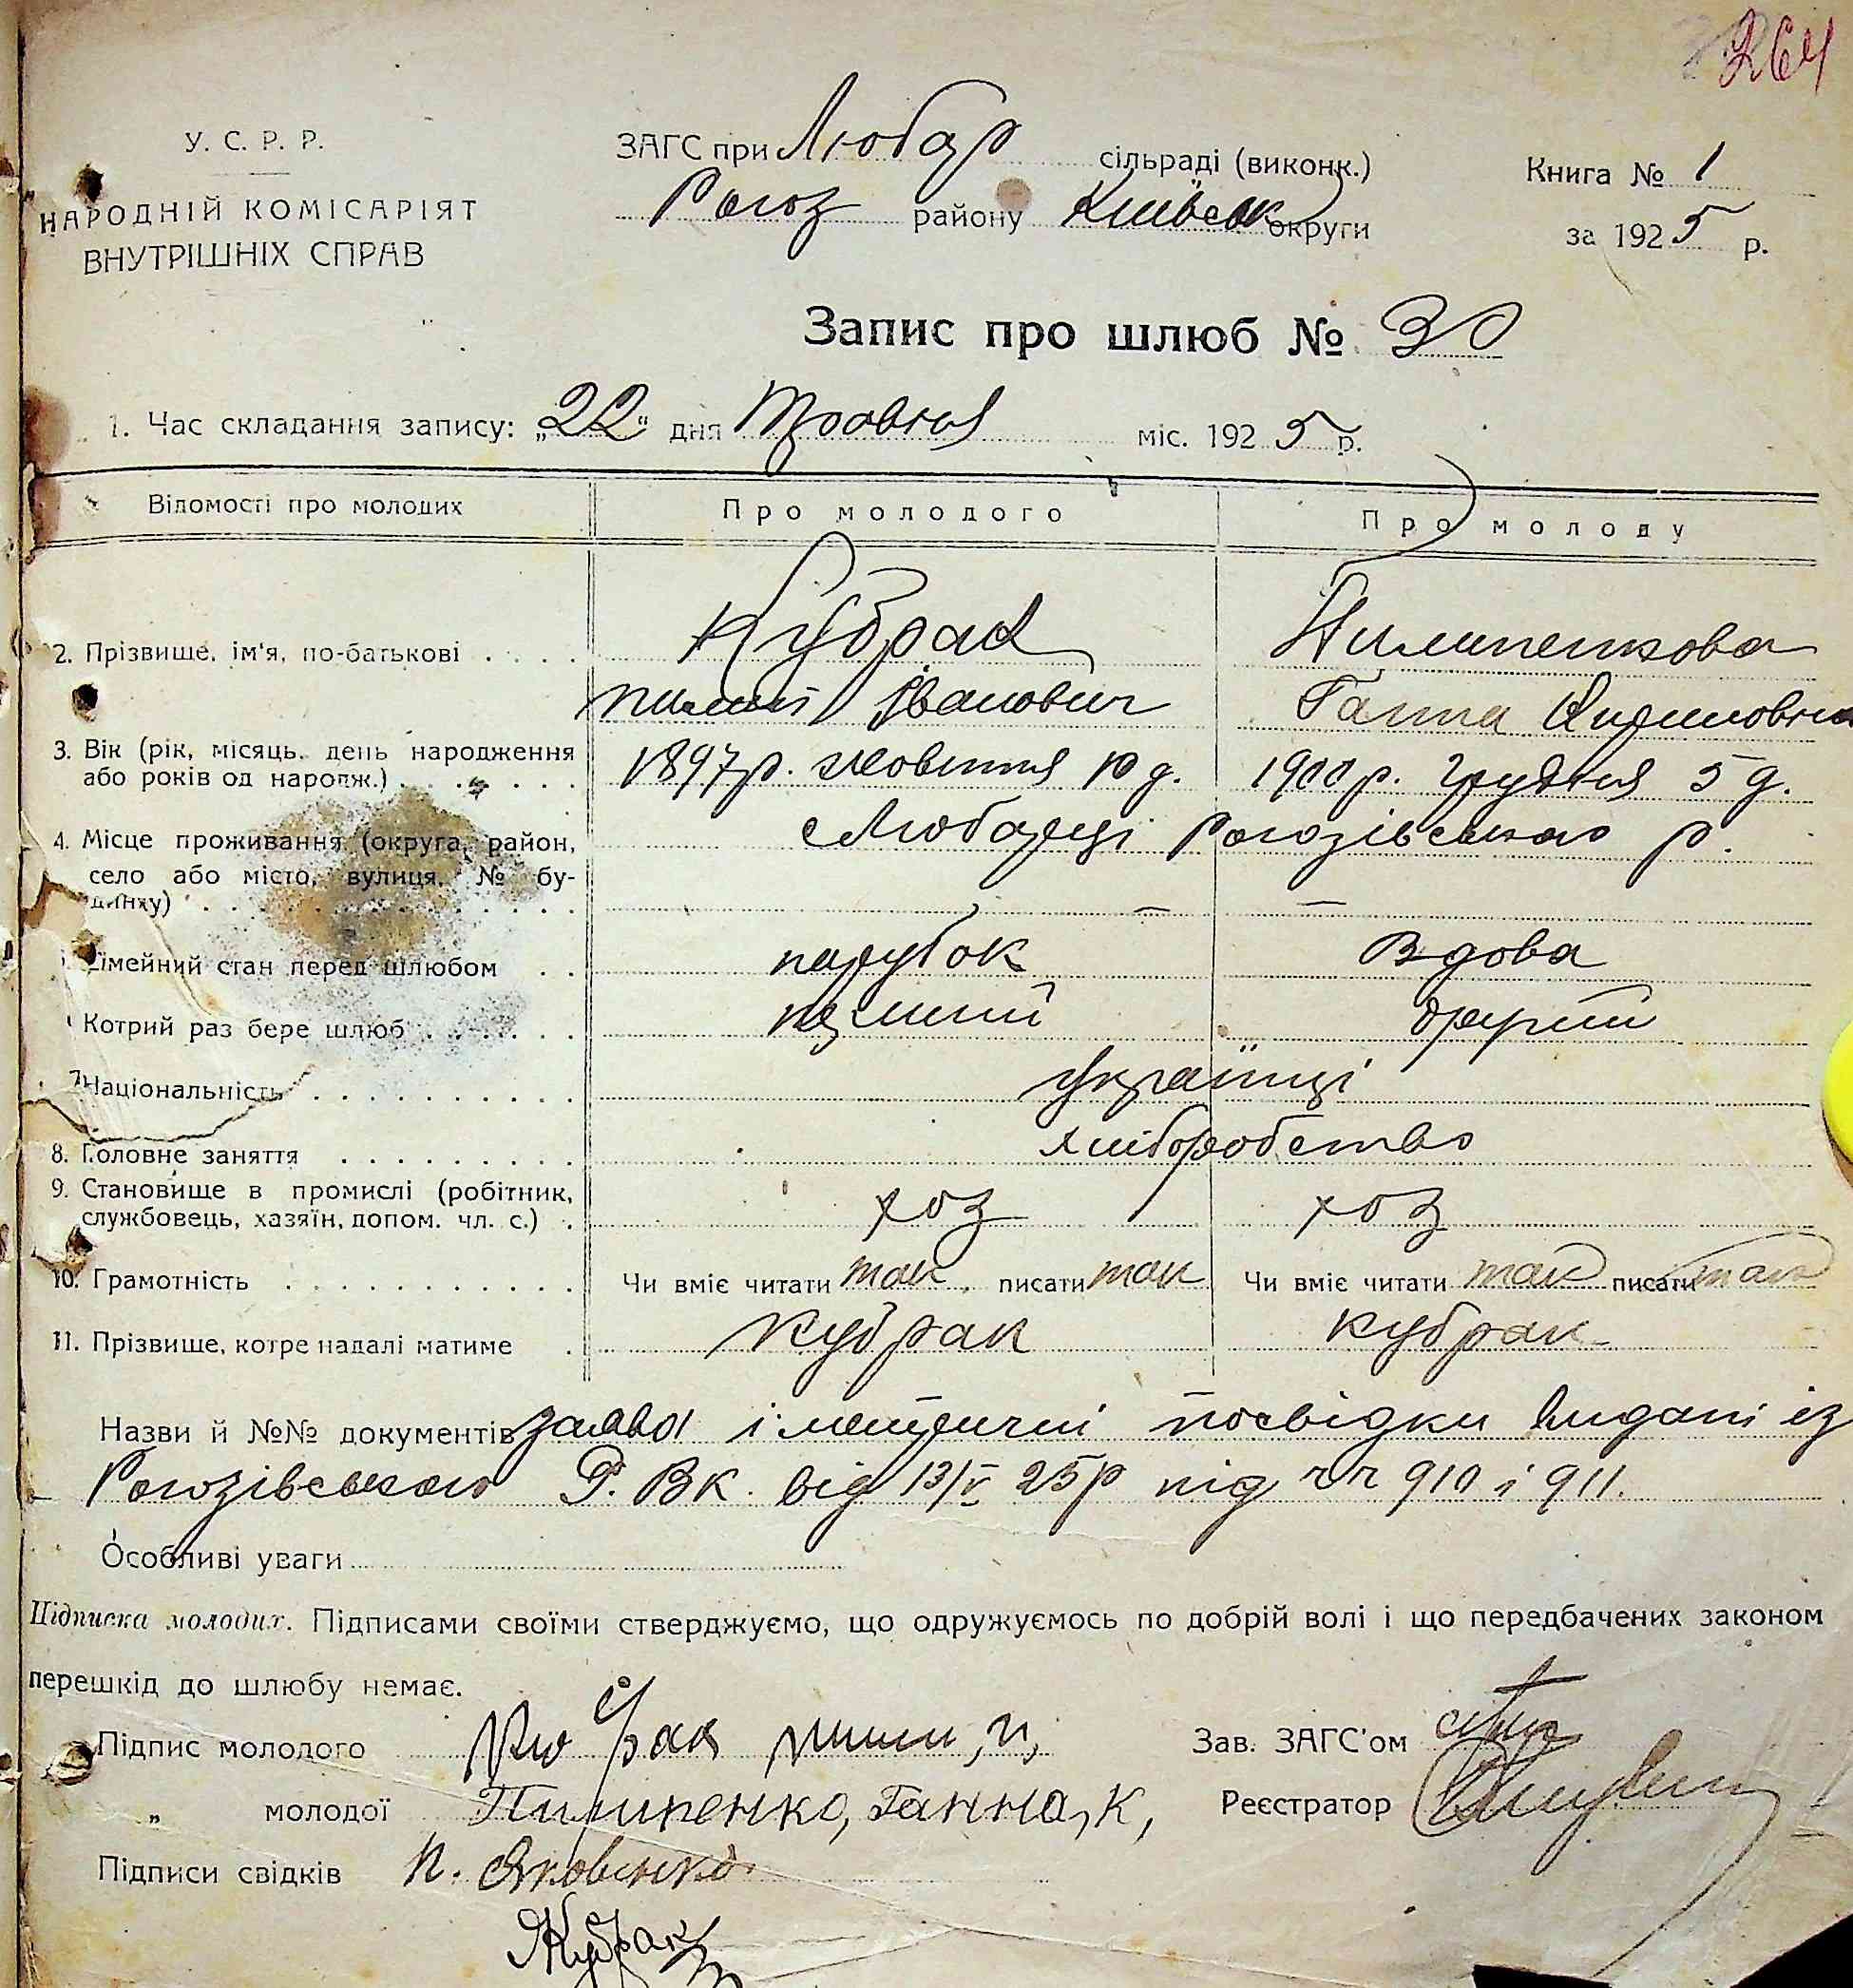 264
У. С. Р. Р.
НАРОДНІЙ КОМІСАРІЯТ
ВНУТРІШНІХ СПРАВ
ЗАГС при Любар сільраді (виконк.)
Рогоз району Київськ округи
Книга № 1
за 1925 р.
Запис про шлюб № 30
1. Час складання запису: „22“ дня Травня міс. 1925 р.
Відомості про молодих
Про молодого
Про молоду
2. Прізвище, ім'я, по-батькові
Кубрак
Пилипенкова
Іванович
Ганна
3. Вік (рік, місяць, день народження
або років од народж.)
1897р. жовтня 10 д.
1900 р. Грудня 5 д.
4. Місце проживання (округа, район,
село або місто, вулиця, № бу-
динку)
с Любарці Рогозівського р.
— —
Сімейний стан перед шлюбом
парубок
Вдова
Котрий раз бере шлюб
перший
другий
7. Національність
Українці
8. Головне заняття
хліборобство
9. Становище в промислі (робітник,
службовець, хазяїн, допом. чл. с.)
хоз
хоз
10. Грамотність
Чи вміє читати так, писати так
Чи вміє читати так писати так
11. Прізвище, котре надалі матиме
Кубрак
Кубрак
Назви й №№ документів заява і метричні посвідки видані із
Рогозівського Р. ВК. від 13/V 25р під чч 910 і 911.
Особливі уваги
Підписка молодих. Підписами своїми стверджуємо, що одружуємось по добрій волі і що передбачених законом
перешкід до шлюбу немає.
Підпис молодого
Зав. ЗАГС'ом
„ молодої Пилипенко, Ганна, К,
Реєстратор
Підписи свідків П. Яковенко
Кубрак